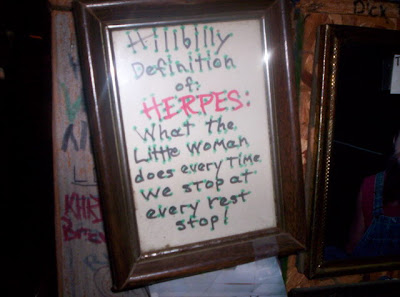 Hillbilly
Definition
of:
HERPES:
What the
Little Woman
does every Time
We STOP at
every rest
stop!
Dick